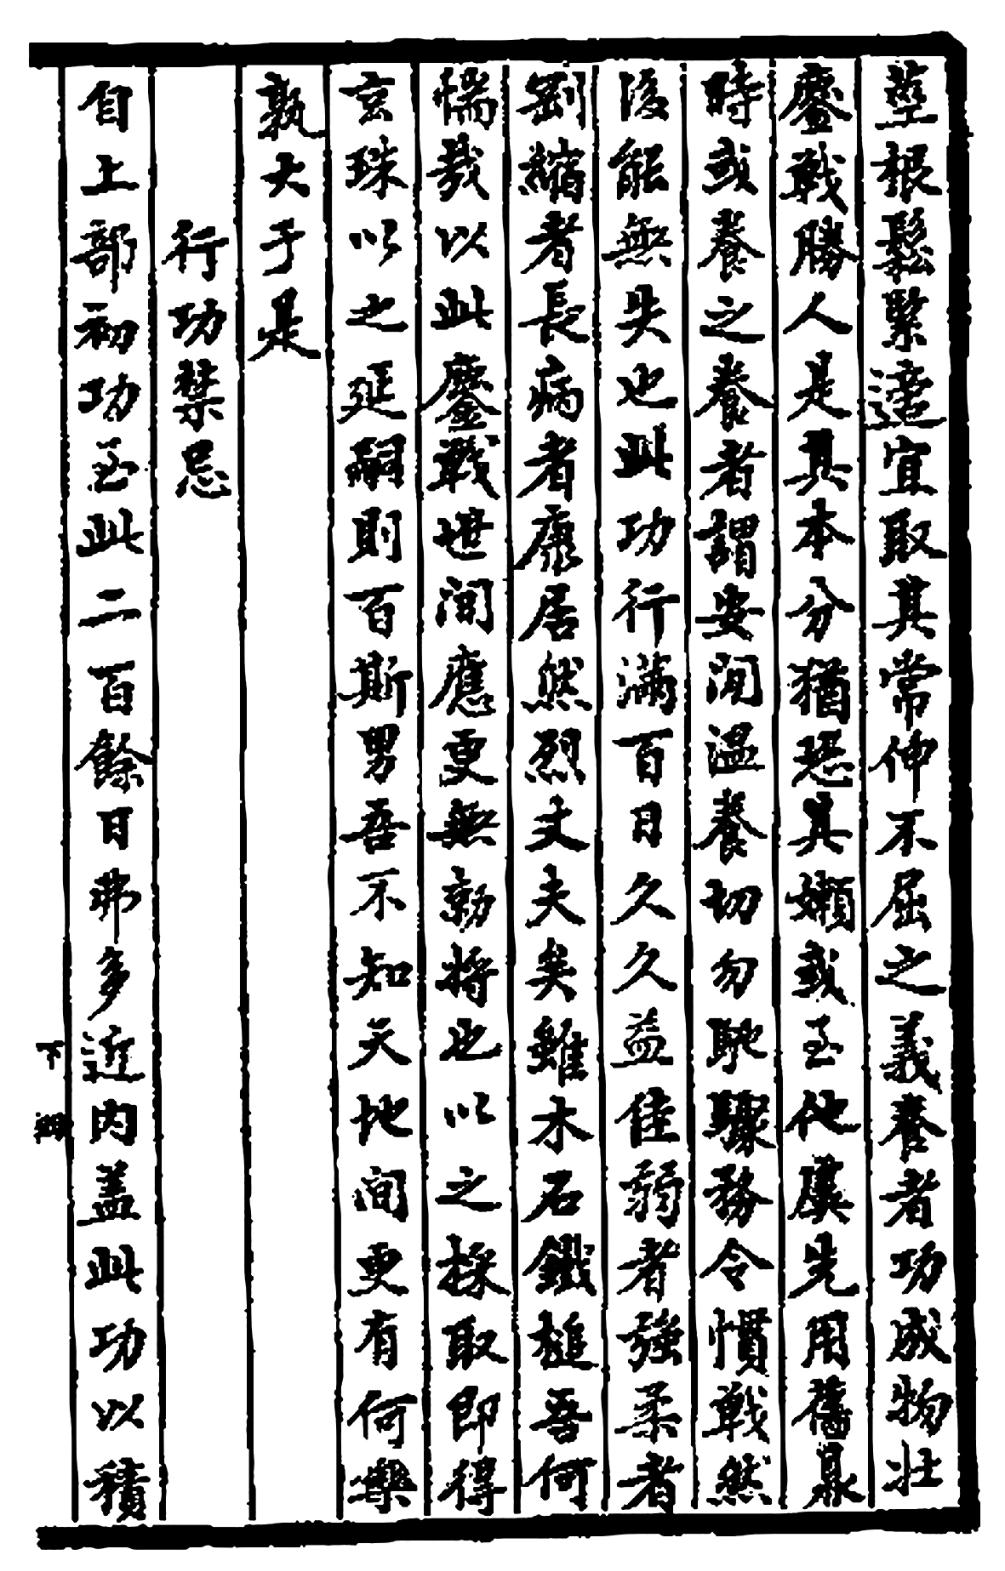 莖根鬆緊適宜取其常伸不屈之義養者功成物壯
鏖戰勝人是其本分猶恐其嫩或至他虞先用舊鼎
時或養之養者謂安閒溫養切勿馳驟務令慣戰然
後能無失也此功行滿百日久久益佳弱者強柔者
剛縮者長病者康居然烈丈夫矣雖木石鐵槌吾何
惴哉以此鏖戰世間應更無勍將也以之採取即得
玄珠以之延嗣則百斯男吾不知天地間更有何樂
孰大于是
行功禁忌
自上部初功至此二百餘日弗多近內蓋此功以積
下